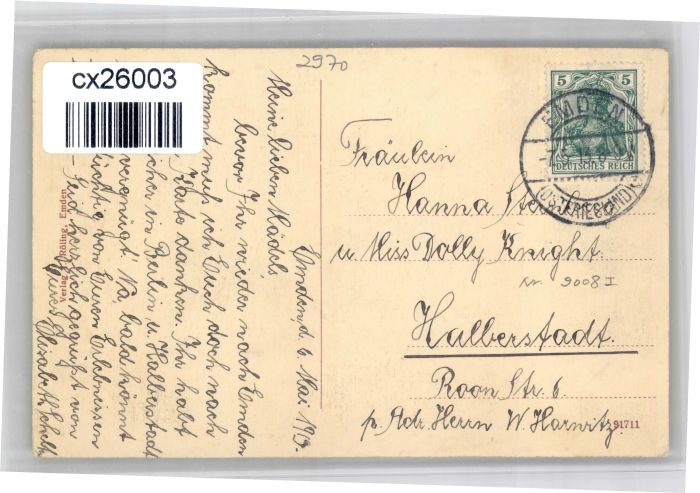 cx26003
2970
5 5
DEUTSCHES REICH
EMDEN
(OSTFRIESLAND)
Fräulein
Hanna
u. Miss Dolly Knight.
nr. 9008 I
Halberstadt.
Roon Str. 6.
p. Adr. Herrn W. Harwitz.
91711
Verlag Röling, Emden
Emden, d. 6 Mai 1913.
Meine lieben Mädels
bevor Ihr wieder nach Emden
kommt muß ich Euch doch noch
danken. Ihr habt
in Berlin u. Halberstadt
vergnügt! Na, bald könnt
von Euren Erlebnissen
Seid herzlich gegrüßt von
Elisabeth